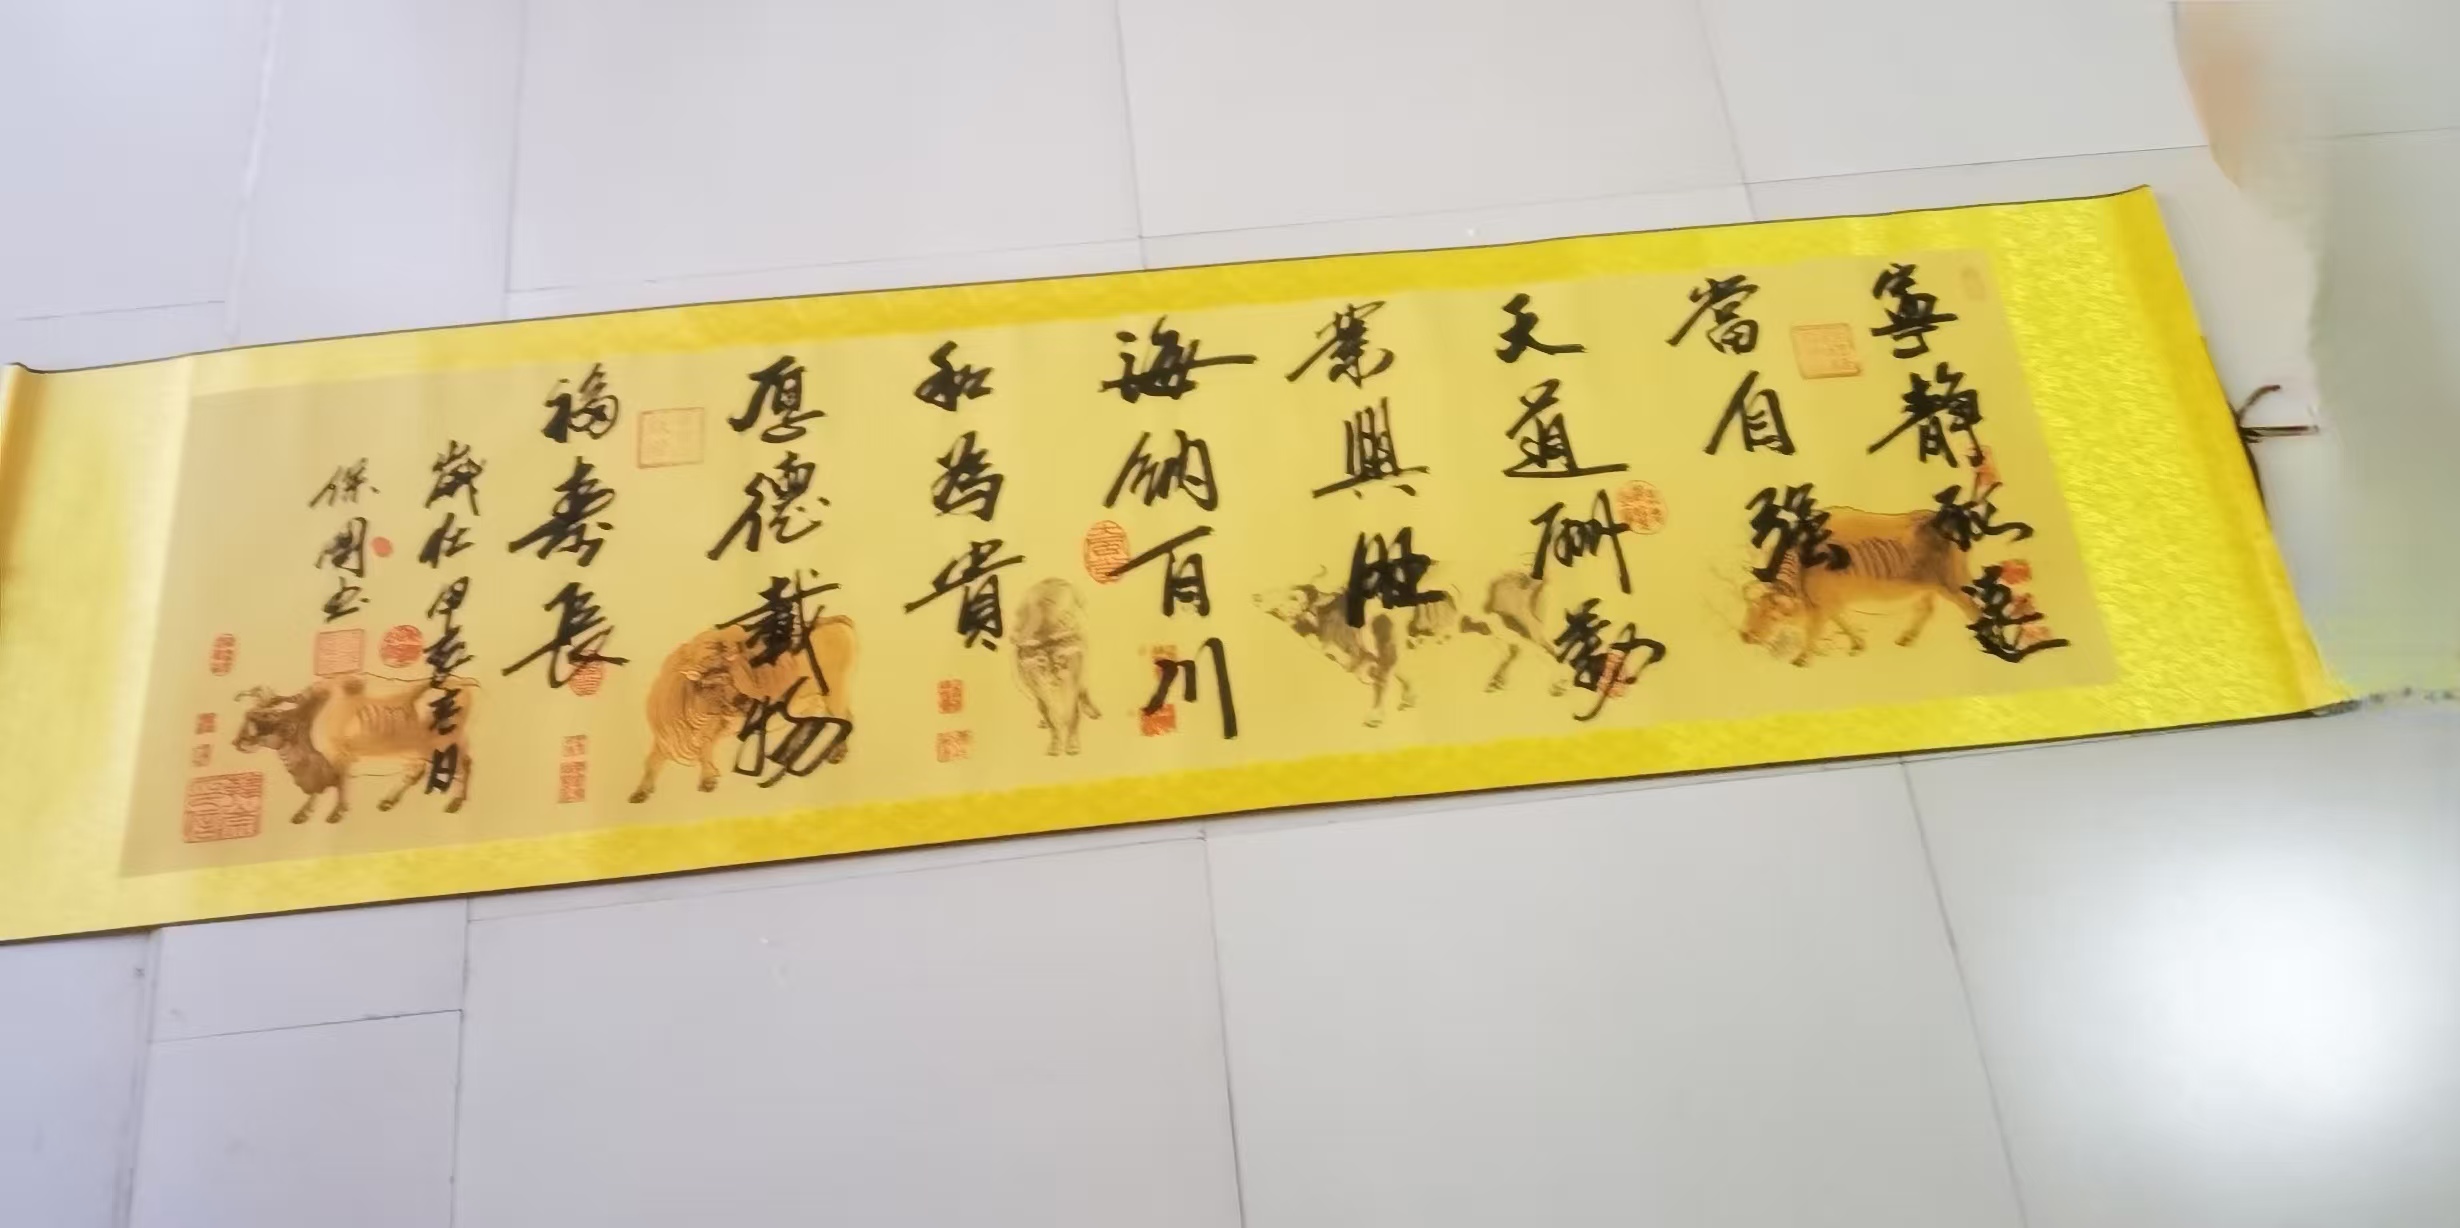 寧静致遠
當自强
天道酬勤
業興旺
海納百川
和為貴
厚德載物
福壽長
歲在甲辰春日
保國书